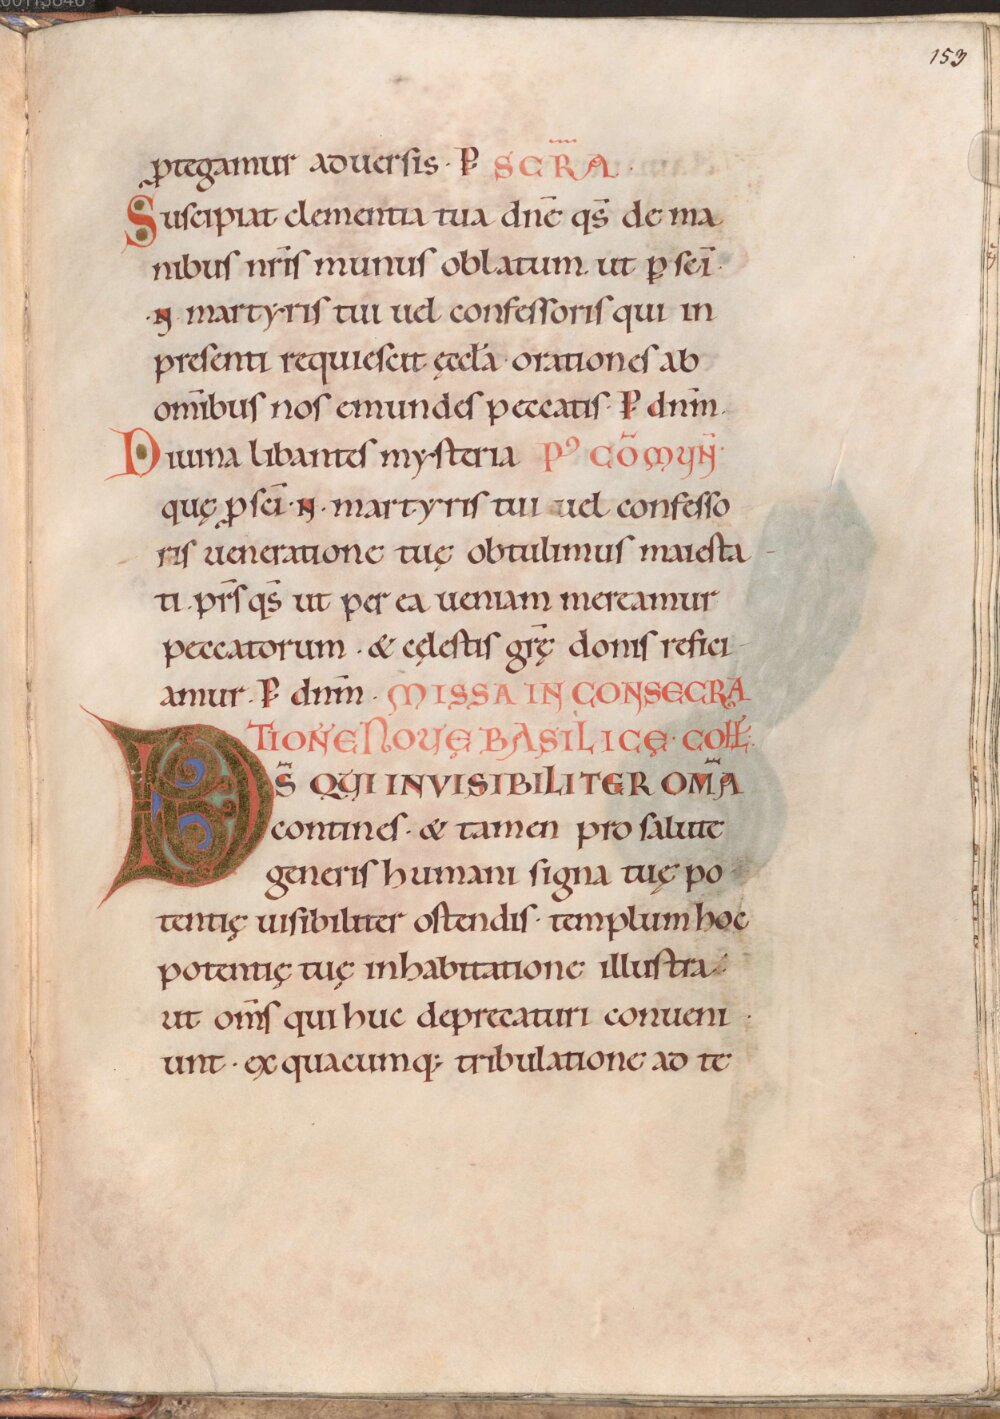 153
ꝓtegamur aduersis · P̄ SECR̄A
Suscipiat clementia tua dn̄e qs̄ de ma
nibus nr̄is munus oblatum. ut ꝑ sc̄i
·N· martyris tui uel confessoris qui in
presenti requiescit ęccl̄a · orationes ab
om̄ibus nos emundes peccatis · P̄ dn̄m.
Diuina libantes mysteria Pꝰ CŌMUN̄
quę ꝓ sc̄i · N · martyris tui uel confesso
ris ueneratione tuę obtulimus maiesta
ti . pr̄s qs̄ ut per ea ueniam mereamur
peccatorum · & cęlestis gr̄ę donis refici
amur · P̄ dn̄m · MISSA IN CONSECRA
TIONE NOUĘ BASILICĘ · COLL̄.
DS̄ QUI INVISIBILITER OM̄A
contines · & tamen pro salute
generis humani signa tuę po
tentię uisibiliter ostendis · templum hoc
potentię tuę inhabitatione illustra ·
ut om̄s qui huc deprecaturi conueni
unt · ex quacumq; tribulatione ad te